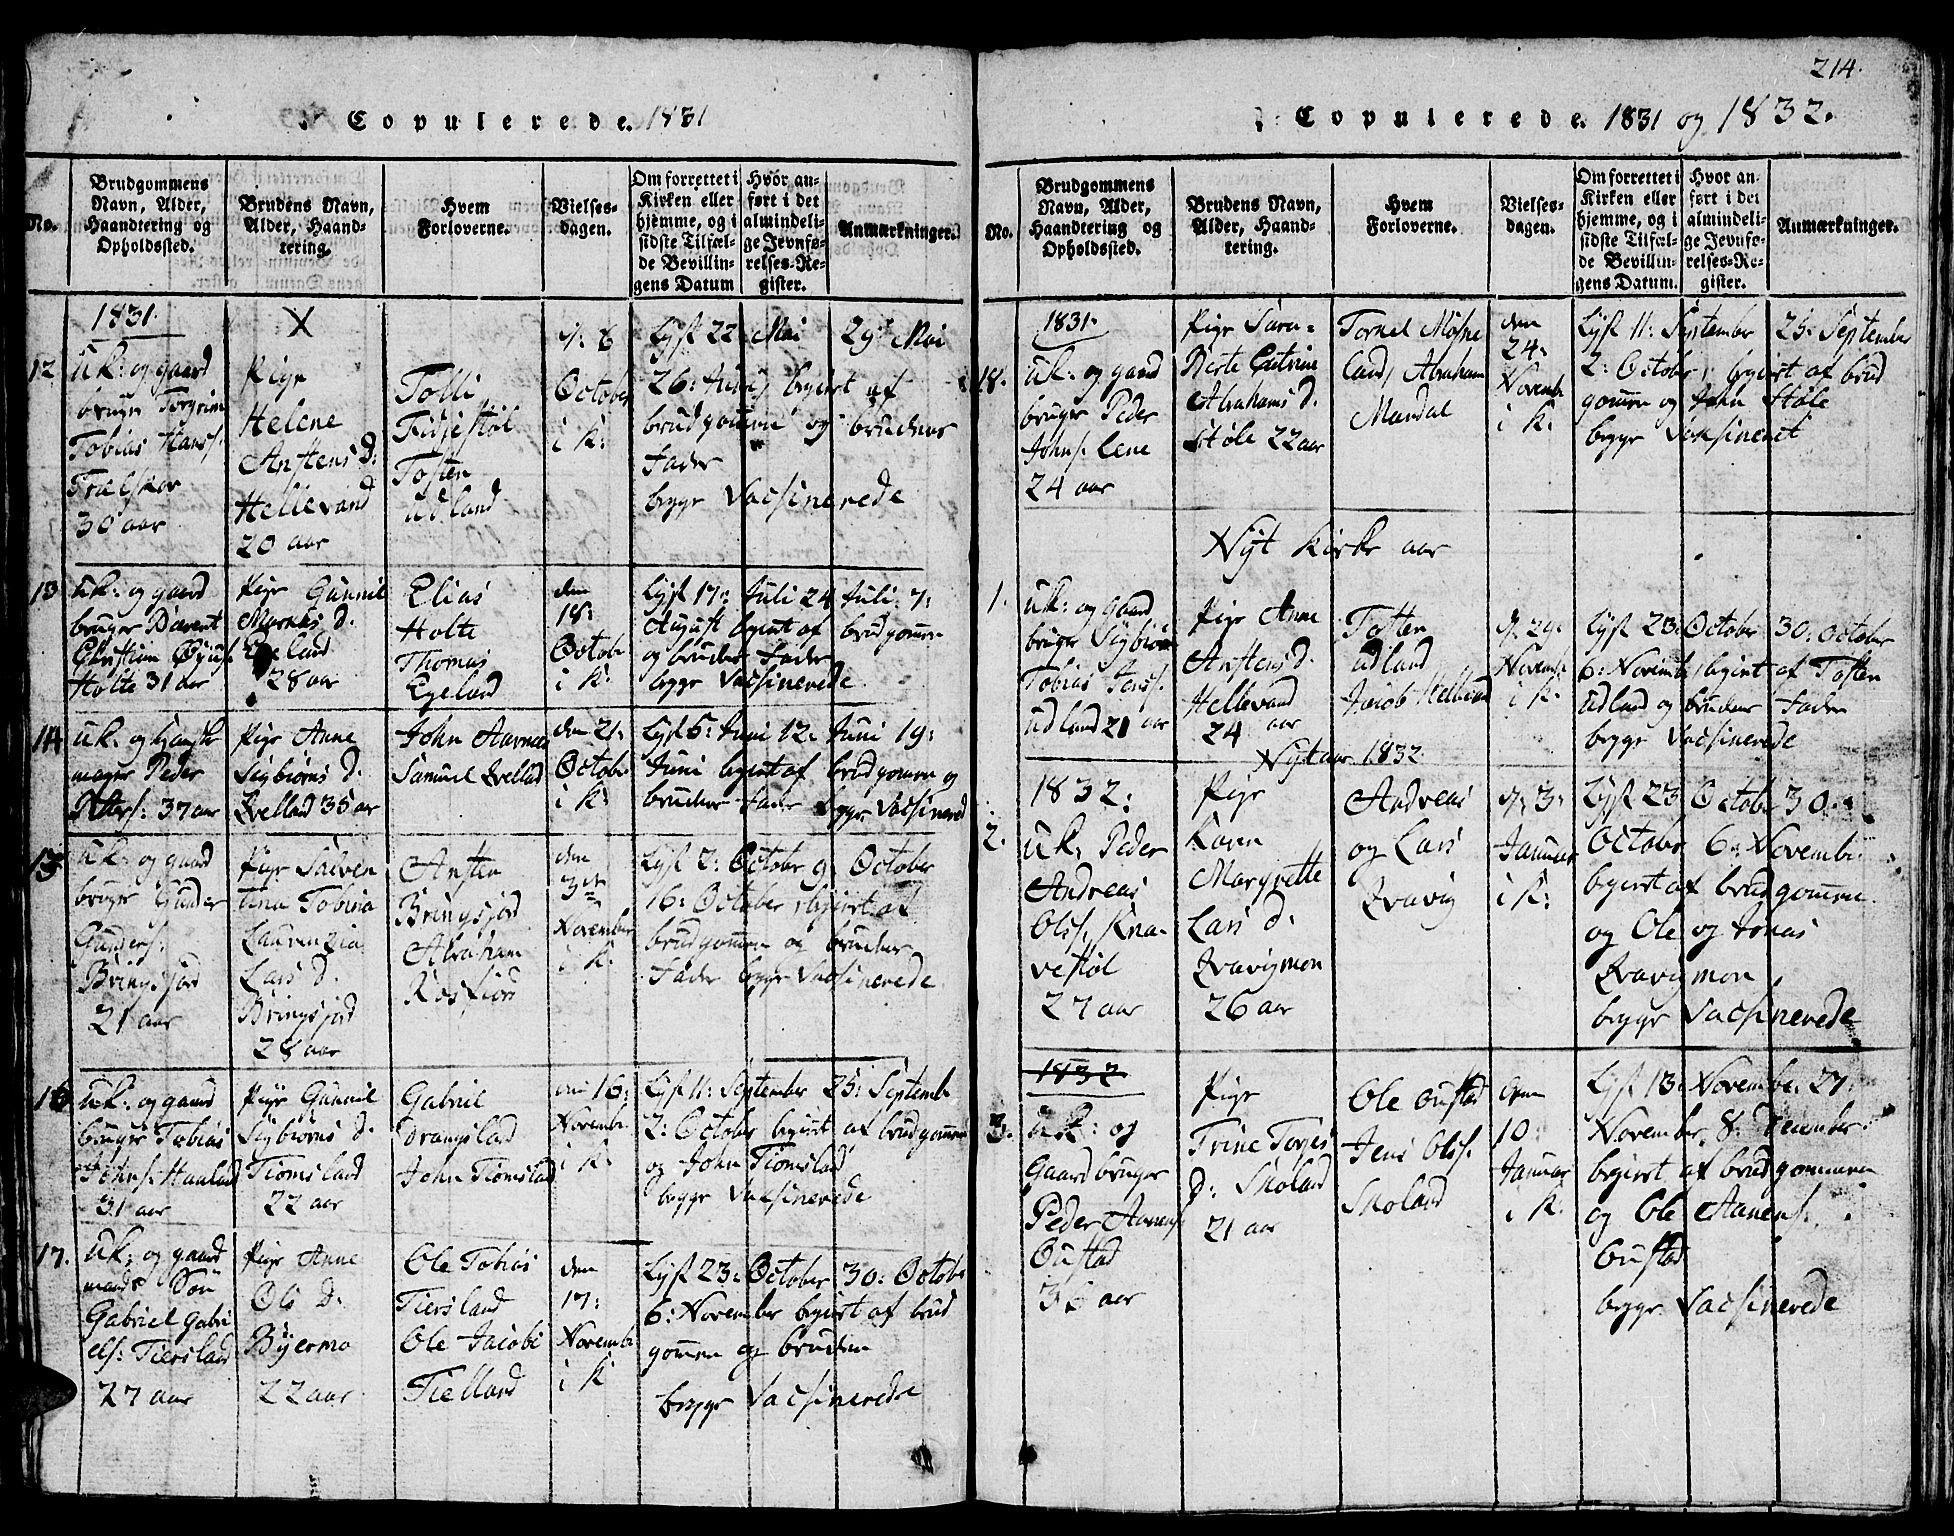 Copulerede. 1831
No.
Brudgommens Navn, Alder, Haandtering og Opholdssted.
Brudens Navn, Alder, Haandtering.
Hvem Forloverne.
Vielses-dagen.
Om forrettet i Kirken eller hjemme, og i sidste Tilfælde Bevillingens Datum
Hvor anført i det almindelige Jevnførelses-Register.
Anmærkninger.
1831.
X
12
uk: og gaard
bruger Torgrim
Tobias Hans s.
Trælskor
30 aar
Pige
Helene
Anstens D:
Hellevand
20 aar
Tolli
Fidjestøl
Tosten
Udland
d: 6
October
i K:
Lyst 22 Mai 29 Mai
26: Junij begiert af
brudgommen og brudens
Fader
begge Vacsinerede
13
uk: og gaard
bruger Barent
Christian
Holte 31 aar
Pige Gunnil
Markus D.
28 aar
Elias
Holte
Thomas
Egeland
den
18:
October
i K:
Lyst 17: Juli 24 Juli 7:
August begiert af brudgommen
og brudens Fader
begge Vacsinerede
14
uk: og
mager Peder
Peders: 37 aar
Pige Anne
Sigbiørns D.
Qvelland 35 aar
John Aavnes
Samuel Qvelland
den 21:
October
i K:
Lyst 5: Juni 12: Juni 19:
Juni begiert af brudgommen og
brudens Fader begge Vacsinered
15
uk: og gaard
bruger Gunder
Gunders s.
Bringsjord
21 aar
Pige Salven
tina Tobina
Laurenzia
Lars D.
Bringsjord
28 aar
Ansten
Bringsjord
Abraham
Rosfiord
den
3de
November
i K:
Lyst 2: October 9: October
16: October, begiert af
brudgommen og brudens
Fader begge Vacsinerede
16
uk: og gaard
bruger Tobias
Johns s. Haaland
31 aar
Pige Gunnil
Sigbiørns D.
Tiomsland
22 aar
Gabriel
Drangsland
John Tiomsland
den 16:
November
i K:
Lyst 11: September 25: Septemb
2: October begiert af brudgommen
og John Tiomsland
begge Vacsinerede
17.
uk: og gaard
mands Søn
Gabriel Gabri
els: Tiersland
27 aar
Pige Anne
Ols D.
Byermo
22 aar
Ole Tobias
Tiersland
Ole Jacobs
Tielland
den
17:
November
i K
Lyst 23: October 30: Octobe
6: November begiert af brud
gommen og bruden
begge Vacsinerede
214.
Copulerede. 1831 og 1832.
No.
Brudgommens Navn, Alder, Haandtering og Opholdssted.
Brudens Navn, Alder, Haandtering.
Hvem Forloverne.
Vielses-dagen.
Om forrettet i Kirken eller hjemme, og i sidste Tilfælde Bevillingens Datum.
Hvor anført i det almindelige Jevnførelses-Register.
Anmærkninger.
1831.
18.
uk: og gaard
bruger Peder
Johns s. Lene
24 aar
Pige Sara
Berte Catrine
Abrahams D.
Støle 22 aar
Tornel Mosne
land, Abraham
Mandal
den
24:
Novemb
i K:
Lyst 11: September 25: September
2: October, begiert af brud
gommen og John Støle
begge Vacsineret
Nyt Kirke aar
1.
uk: og gaard
bruger Sigbiørn
Tobias Jens s.
Udland 21 aar
Pige Anne
Anstens D.
Hellevand
24 aar
Tosten
Udland
Jacob Hellevand
d: 29:
Novemb
i K:
Lyst 23: October 30: October
6: Novembr, begiert af Tosten
Udland og brudens Fader
begge Vacsinerede
Nyt aar 1832
1832:
2.
uk: Peder
Andreas
Ols s. Kna-
vestøl
27 aar
Pige
Karen
Margrette
Lars D.
Qvavigmon
26 aar
Andreas
og Lars
Qvavig
d: 3:
Januar
i K:
Lyst 23 October 30:
October 6: Novembr
begiert af brudgommen
og Ole og Jonas
Qvavigmon
begge Vacsinerede
1832
3.
uk: og
Gaardbruger
Peder Aanens s.
Oustad
36 aar
Pige
Trine Torjes
D: Skoland
21 aar
Ole Oustad
Jens Ols s.
Skoland
den
10:
Januar
i K:
Lyst 13: November 27:
November, 8: December
begiert af brudgommen
og Ole Aanens s.
Oustad
begge Vacsinerede